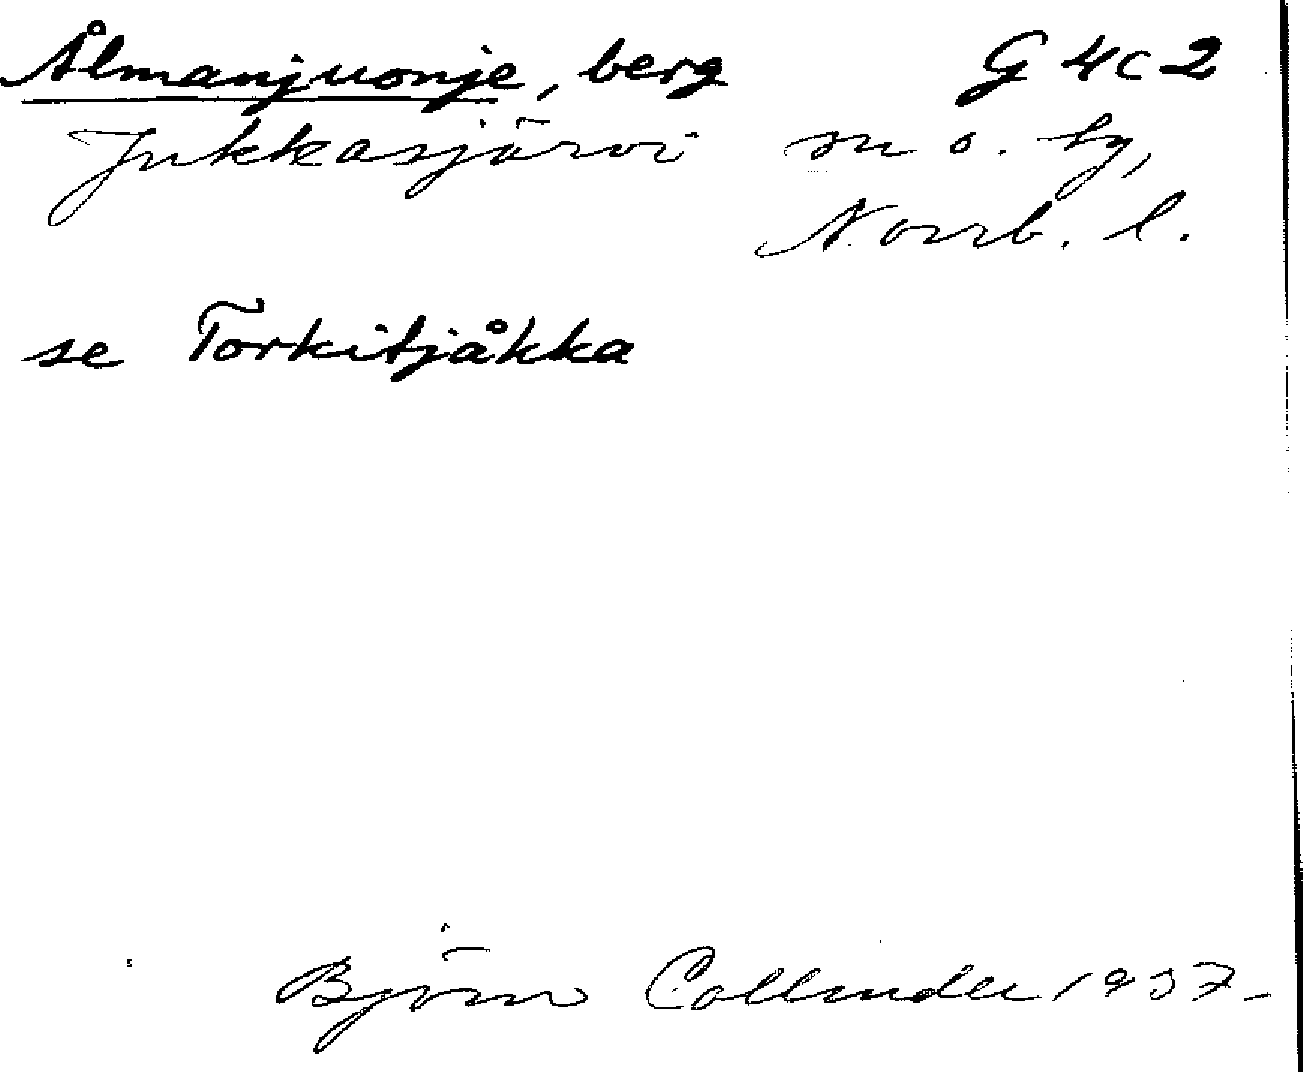 Ålmanjuonje, berg G 4c2
Jukkasjärvi sn o. tg,
Norrb. l.
se Torkitjåkka
Björn Collinder 1937-